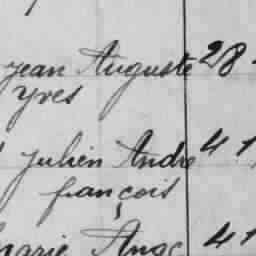 jean Auguste 28
Yves
Julien André 41
françois
Marie Ange 41